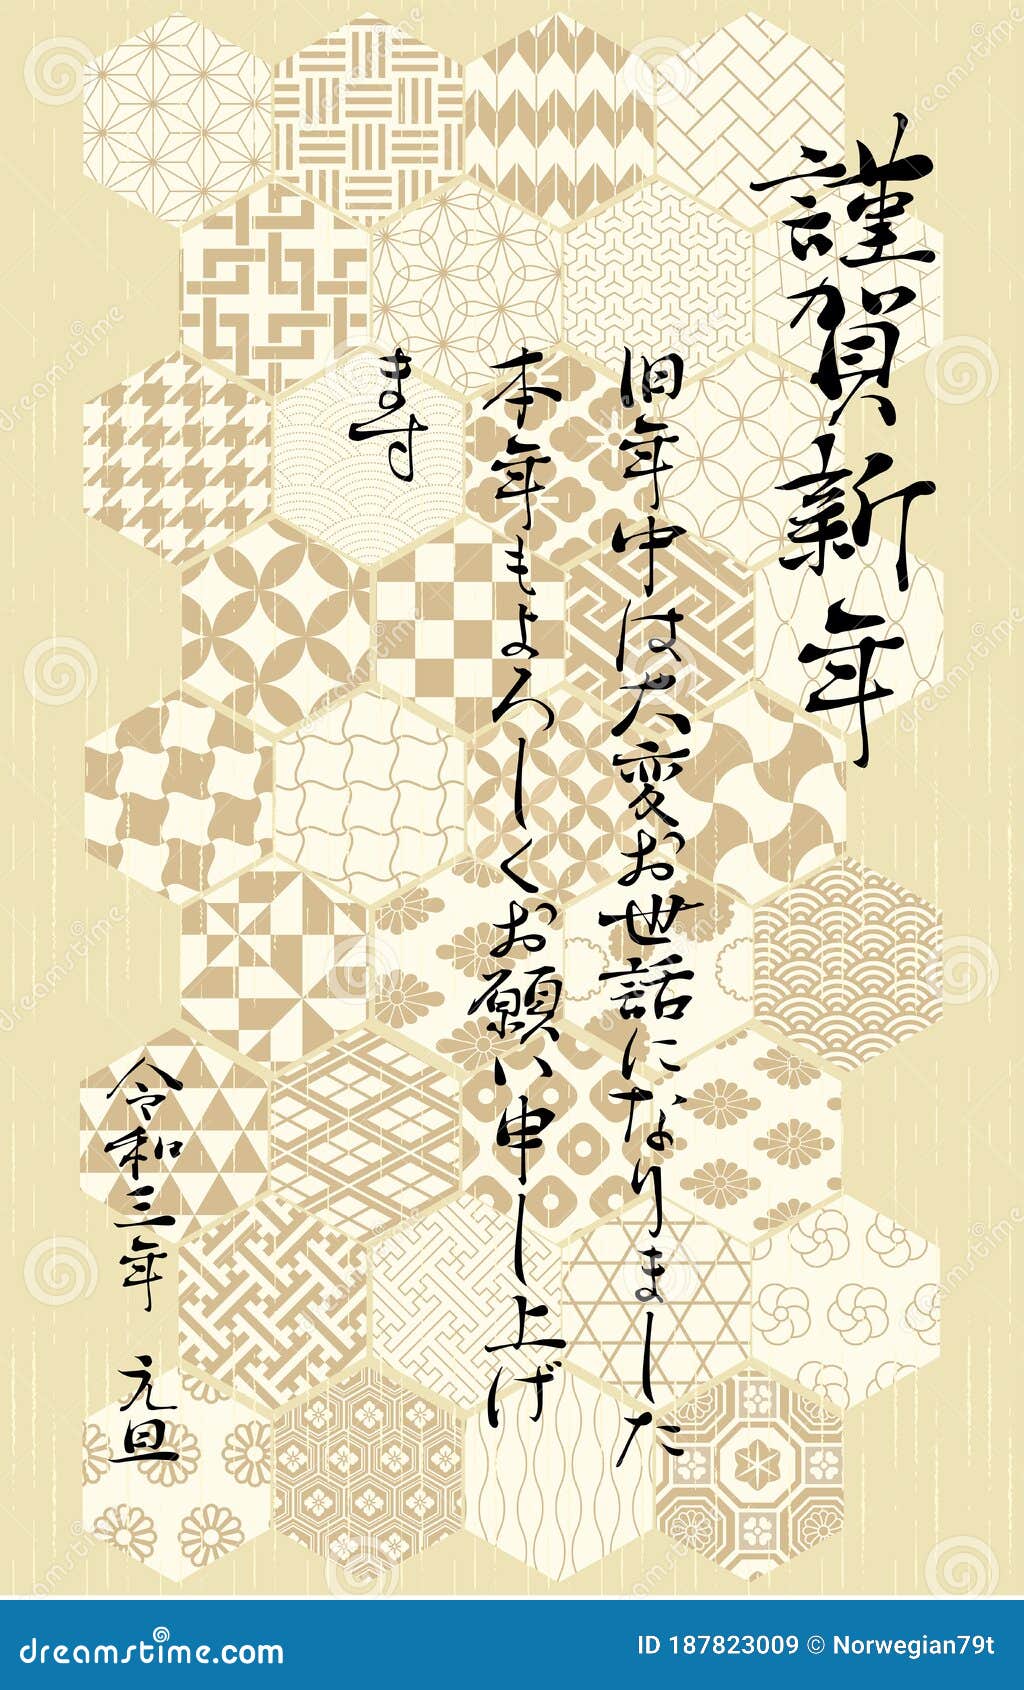 謹賀新年
旧年中は大変お世話になりました
本年もよろしくお願い申し上げ
ます
令和三年 元旦
dreamstime.com
ID 187823009 © Norwegian79t